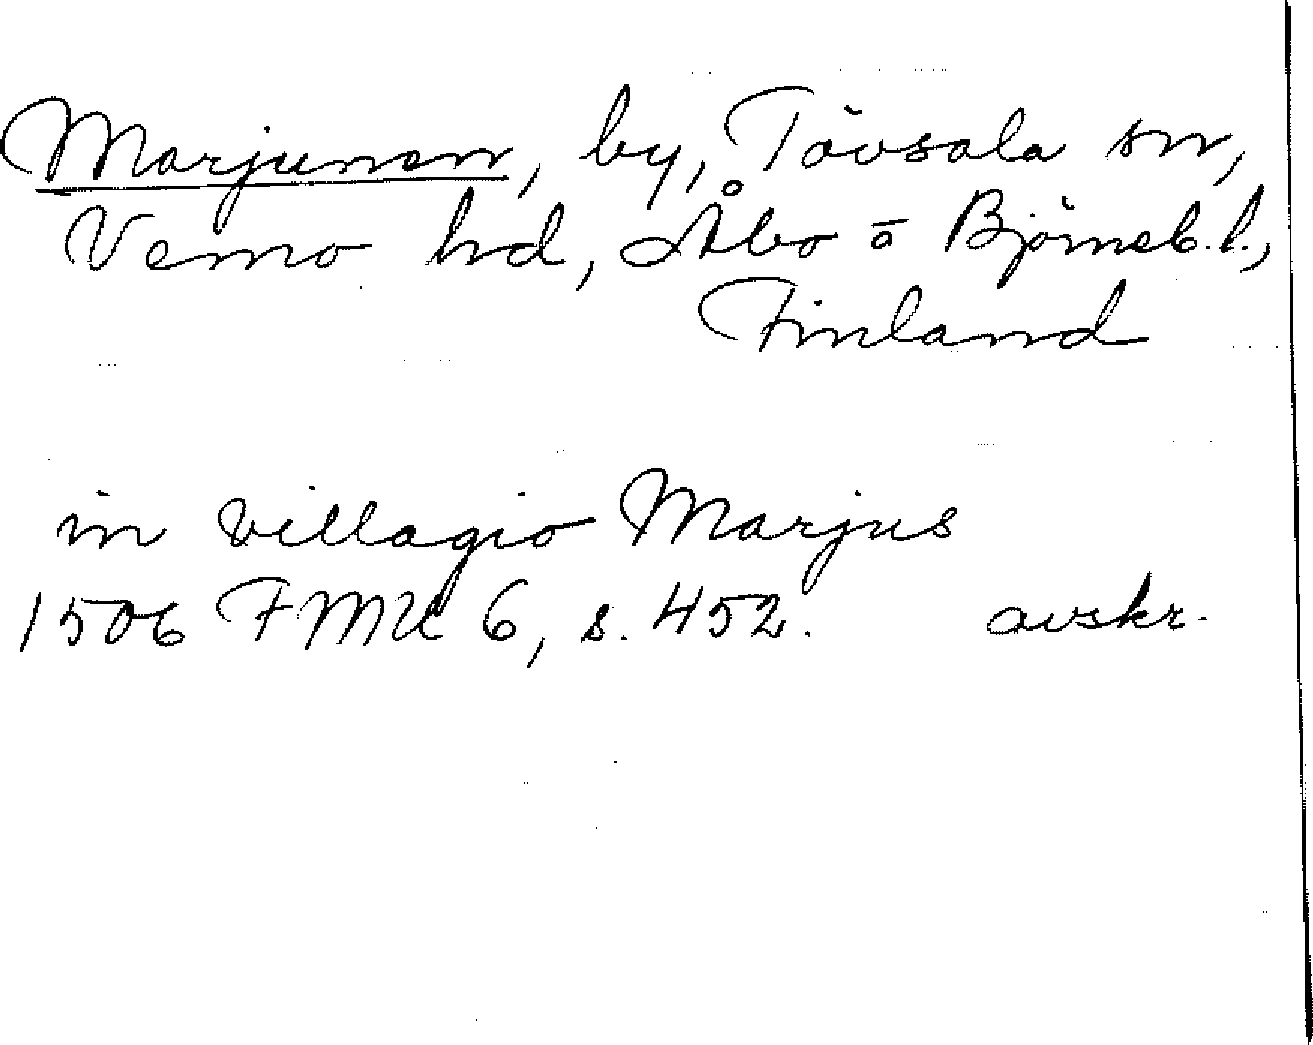 Marjunen, by, Tövsala sn,
Vemo hd, Åbo o Björneb. l.,
Finland
in villagio Marjus
1506 FMU 6, s. 452. avskr.